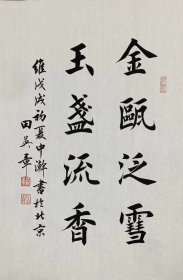 金甌泛雪
玉盞流香
維戊戌初夏中澣書於北京
田英章